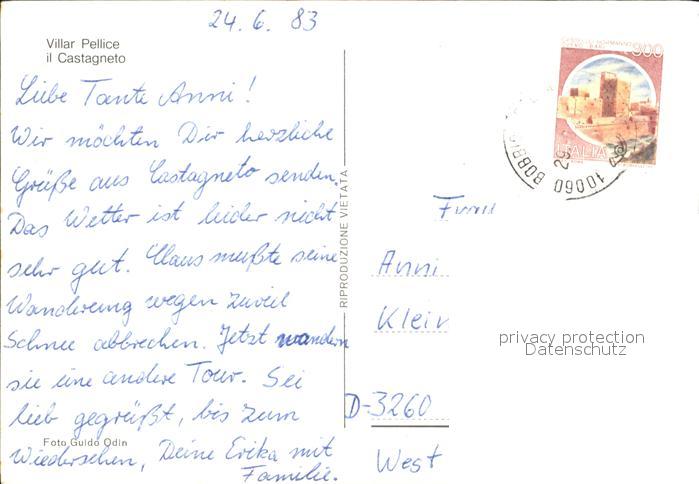 24. 6. 83
Villar Pellice
il Castagneto
Liebe Tante Anni!
Wir möchten Dir herzliche
Grüße aus Castagneto senden.
Das Wetter ist leider nicht
sehr gut. Claus mußte seine
Wanderung wegen zuviel
Schnee abbrechen. Jetzt wandern
sie eine andere Tour. Sei
lieb gegrüßt, bis zum
Wiedersehen, Deine Erika mit
Familie.
Foto Guido Odin
RIPRODUZIONE VIETATA
900
ITALIA
10060 BOBBIO
Anni
D-3260
West
privacy protection
Datenschutz